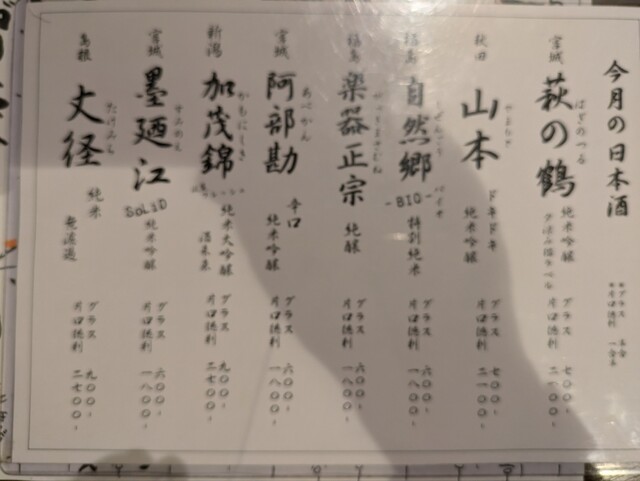 今月の日本酒
グラス 半合
片口徳利 一合半
宮城
萩の鶴
はぎのつる
純米吟醸
夕涼み猫ラベル
グラス 七〇〇-
片口徳利 二一〇〇-
秋田
山本
やまもと
ドキドキ
純米吟醸
グラス 七〇〇-
片口徳利 二一〇〇-
福島
自然郷
しぜんごう
-BIO-
バイオ
特別純米
グラス 六〇〇-
片口徳利 一八〇〇-
福島
楽器正宗
がっきまさむね
純醸
グラス 六〇〇-
片口徳利 一八〇〇-
宮城
阿部勘
あべかん
辛口
純米吟醸
グラス 六〇〇-
片口徳利 一八〇〇-
新潟
加茂錦
かもにしき
純米大吟醸
酒未来
グラス 九〇〇-
片口徳利 二七〇〇-
宮城
墨廼江
すみのえ
SOLID
純米吟醸
グラス 六〇〇-
片口徳利 一八〇〇-
島根
丈径
たけみち
純米
無濾過
グラス 九〇〇-
片口徳利 二七〇〇-